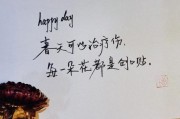 happy day
春天可以治疗伤.
每朵花都是创口贴.